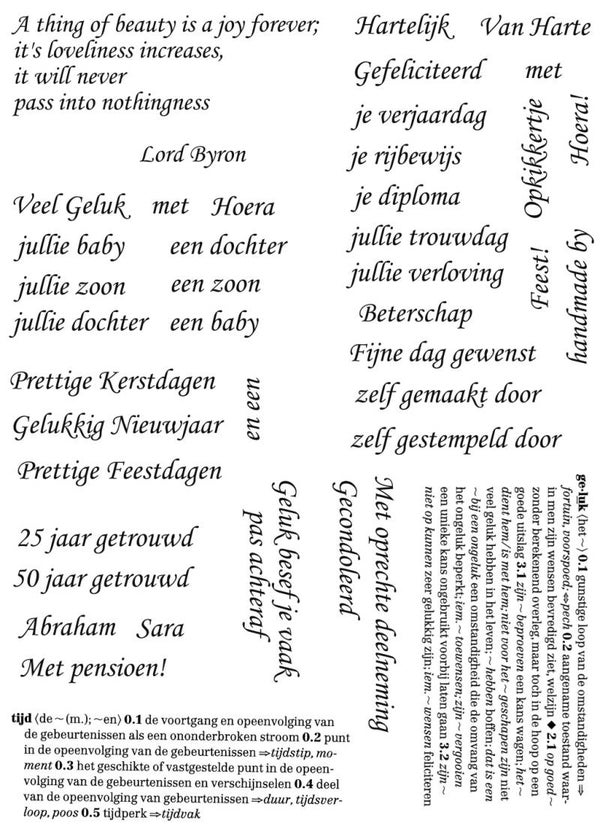 A thing of beauty is a joy forever;
it's loveliness increases,
it will never
pass into nothingness
Lord Byron
Veel Geluk met Hoera
jullie baby een dochter
jullie zoon een zoon
jullie dochter een baby
Prettige Kerstdagen
en een
Gelukkig Nieuwjaar
Prettige Feestdagen
25 jaar getrouwd
50 jaar getrouwd
Abraham Sara
Met pensioen!
Geluk besef je vaak
pas achteraf
Hartelijk Van Harte
Gefeliciteerd met
je verjaardag
je rijbewijs
je diploma
jullie trouwdag
jullie verloving
Beterschap
Fijne dag gewenst
zelf gemaakt door
zelf gestempeld door
Opkikkertje
Hoera!
Feest!
handmade by
Met oprechte deelneming
Gecondoleerd
ge·luk ⟨het~⟩ 0.1 gunstige loop van de omstandigheden ⇒
fortuin, voorspoed; ⇔pech 0.2 aangename toestand waar-
in men zijn wensen bevredigd ziet, welzijn ◆ 2.1 op goed ~
zonder berekenend overleg, maar toch in de hoop op een
goede uitslag 3.1 zijn ~ beproeven een kans wagen; het ~
dient hem/is met hem; niet voor het ~ geschapen zijn niet
veel geluk hebben in het leven; ~ hebben boffen; dat is een
~ bij een ongeluk een omstandigheid die de omvang van
het ongeluk beperkt; iem. ~ toewensen; zijn ~ vergooien
een unieke kans ongebruikt voorbij laten gaan 3.2 zijn ~
niet op kunnen zeer gelukkig zijn; iem. ~ wensen feliciteren
tijd ⟨de~(m.); ~en⟩ 0.1 de voortgang en opeenvolging van
de gebeurtenissen als een ononderbroken stroom 0.2 punt
in de opeenvolging van de gebeurtenissen ⇒tijdstip, mo-
ment 0.3 het geschikte of vastgestelde punt in de opeen-
volging van gebeurtenissen en verschijnselen 0.4 deel
van de opeenvolging van gebeurtenissen ⇒duur, tijdsver-
loop, poos 0.5 tijdperk ⇒tijdvak